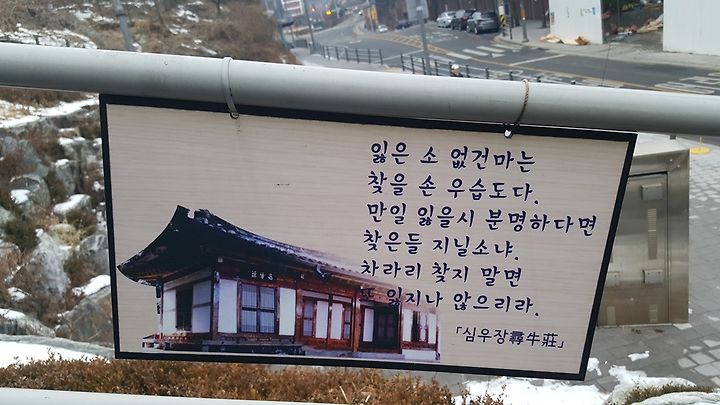 잃은 소 없건마는
찾을 손 우습도다.
만일 잃을시 분명하다면
찾은들 지닐소냐.
차라리 찾지 말면
또 잃지나 않으리라.
「심우장尋牛莊」